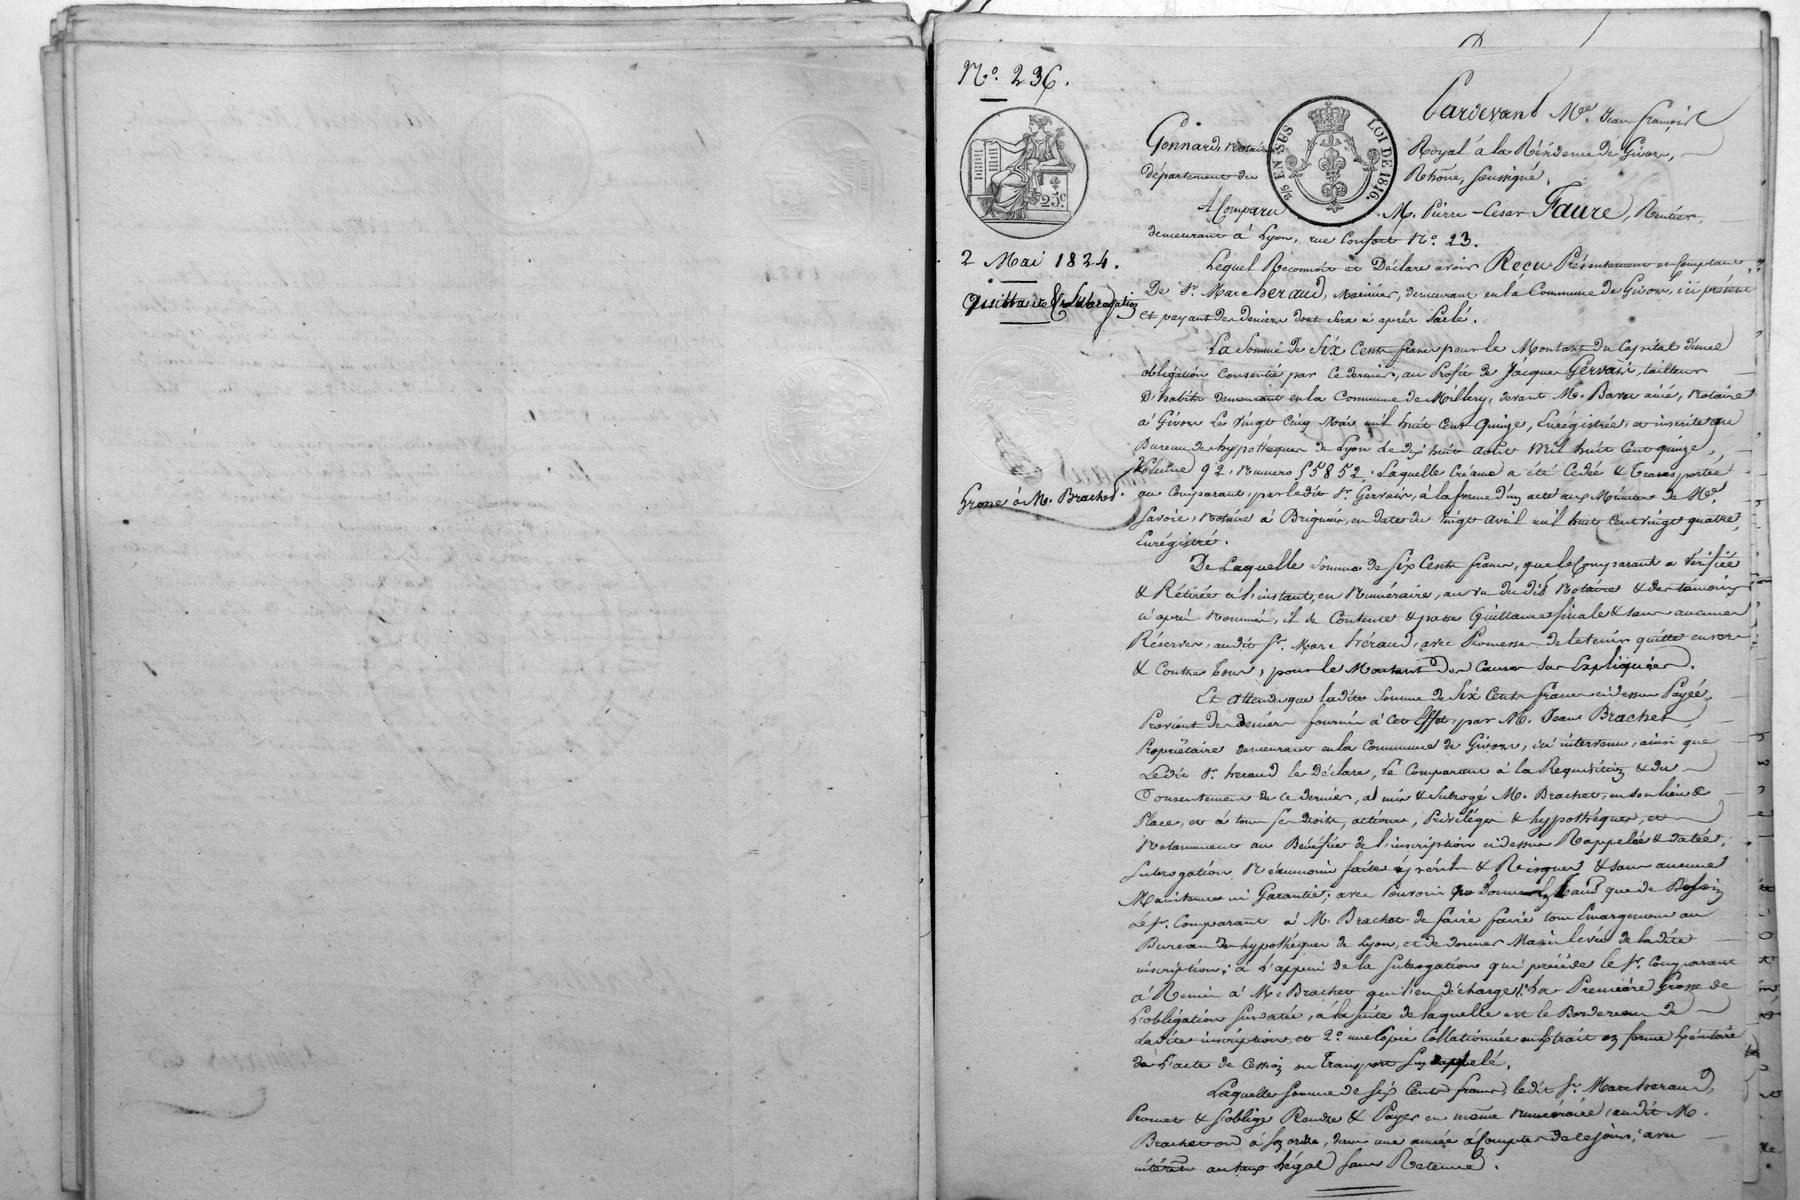 N.° 236.
2/5 EN SUS LOI DE 1816.
25.c
2 Mai 1824.
Quittance & subrogation
Grosse à M. Brachet.
Pardevant M.e Jean françois
Gonnard, Notaire Royal à la Résidence de Givors,
département du Rhône, soussigné,
A Comparu M. Pierre-César Faure, Rentier,
demeurant à Lyon, rue Confort N.° 23.
Lequel Reconnoit et Déclare avoir Reçu Présentement et Comptant,
De S.r Marc heraud, Marinier, demeurant en la Commune de Givors, ici présent
et payant des deniers dont sera ci après Parlé.
La Somme de Six Cents francs pour le Montant du Capital d'une
obligation consentie par ce dernier, au Profit de Jacques Gervais, tailleur
D'habits demeurant en la Commune de Millery, devant M.e Baret ainé, Notaire
à Givors Le Vingt Cinq Mai mil huit Cent Quinze, Enrégistrée, et inscrite au
Bureau des hypothèques de Lyon Le dix huit août Mil huit Cent quinze,
Volume 92. Numero 55852. Laquelle Créance a été Cedée & Transportée
au Comparant, par ledit S.r Gervais, à la forme d'un acte aux Minutes de M.e
Savoie, Notaire à Brignais, en date du Vingt Avril mil huit Cent vingt quatre,
Enrégistré.
De Laquelle somme de Six Cents francs, que le Comparant a Vérifiée
& Rétirée à l'instant, en Numéraire, au vu du dit Notaire & des témoins
ci après Nommés, il se Contente & passe Quittance finale & sans aucunes
Réserves, audit S.r Marc héraud, avec Promesse de le tenir quitte envers
& Contre tous, pour le Montant des Causes sus Expliquées.
Et attendu que ladite Somme de Six Cents francs ci dessus Payée,
Provient de deniers fournis à Cet Effet, par M. Jean Brachet,
Propriétaire demeurant en la Commune de Givors, ici intervenu, ainsi que
Ledit S.r heraud le Déclare, Le Comparant à la Requisition & du
Consentement de ce dernier, a mis & Subrogé M. Brachet, en son lieu &
Place, et à tous ses droits, actions, Priviléges & hypothèques, et
Notamment au Bénéfice de l'inscription ci dessus Rappelée & datée,
Subrogation Néanmoins faite à ses périls & Risques & sans aucune
Maintenue ni Garantie, avec Pouvoir que donne en tant que de Besoin
Le S.r Comparant à M. Brachet de faire faire tous Emargemens au
Bureau des hypothèques de Lyon, et de donner Main levée de la dite
inscription; à L'appui de la Subrogation qui précède le S.r Comparant
à Remis à M. Brachet qui l'en décharge 1.° La Première Grosse de
L'obligation Susdatée, à la suite de laquelle est le Bordereau de
Ladite inscription, et 2.° une Copie Collationnée en forme
de L'acte de Cession en Transport rappelé.
Laquelle Somme de Six Cents francs, ledit S.r Marc heraud,
Promet & s'oblige Rendre & Payer en même numéraire, audit M.
Brachet ou à son ordre, dans une année à Compter de ce jour, avec
intérêts au taux Légal sans Retenue.